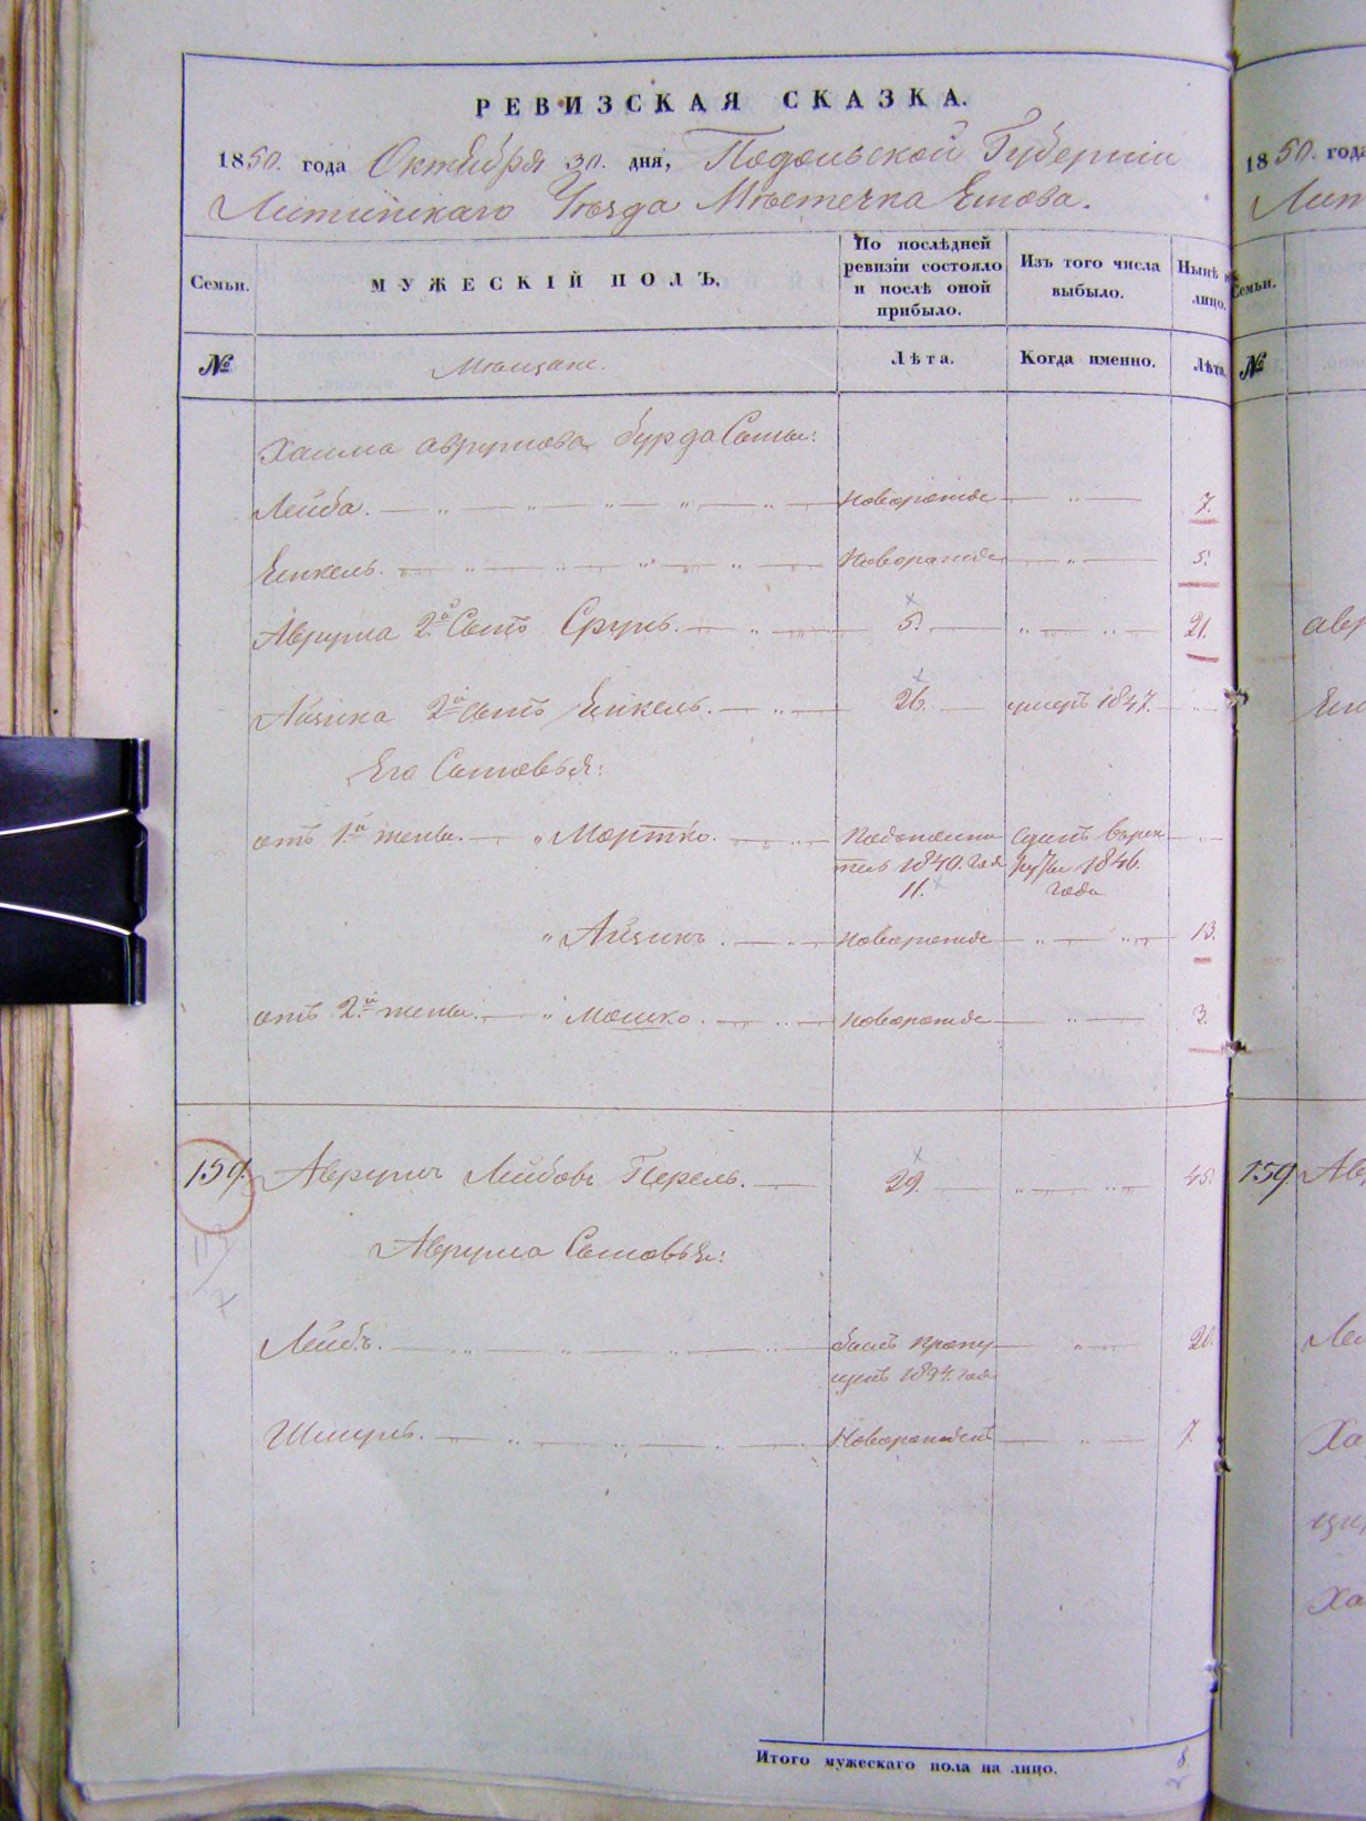 РЕВИЗСКАЯ СКАЗКА.
1850. года Октября 30. дня, Подольской Губерніи
Литинскаго Уѣзда Мѣстечка
Семьи.
МУЖЕСКІЙ ПОЛЪ.
По послѣдней
ревизіи состояло
и послѣ оной
прибыло.
Изъ того числа
выбыло.
Нынѣ
лицо.
№
Мѣщане.
Лѣта.
Когда именно.
Лѣта.
Хаима Аврумова Бурда Сыны:
Лейба. Новорожде 7.
Еинкель. Новорожде 5.
Аврума 2й Сынъ Сруль. 5. 21.
Айзика 2й Сынъ Еинкель. 26. умеръ 1847.
Его Сыновья:
отъ 1й жены. Мортко. 11. 1846. года
Айзикъ. новорожде 13.
отъ 2й жены. Мошко. новорожде 3.
159. Аврумъ Лейбовъ Перель. 29. 45.
Аврума Сыновья:
Лейбъ. былъ пропу 20.
щенъ 1834. года
Шмуль. Новорожденъ 7.
Итого мужескаго пола на лицо. 8
1850. года
Лит
Семьи.
№
авр
159. Ав
Ле
Ха
Ха